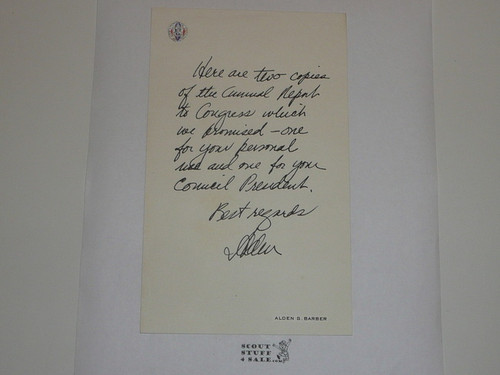 Here are two copies
of the Annual Report
to Congress which
we promised - one
for your personal
use and one for your
Council President.
Best regards
Alden
ALDEN G. BARBER
SCOUT
STUFF
4 SALE...